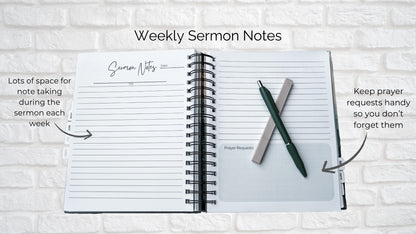 Weekly Sermon Notes
Lots of space for
note taking
during the
sermon each
week
Sermon Notes
Keep prayer
requests handy
so you don't
forget them
Prayer Requests